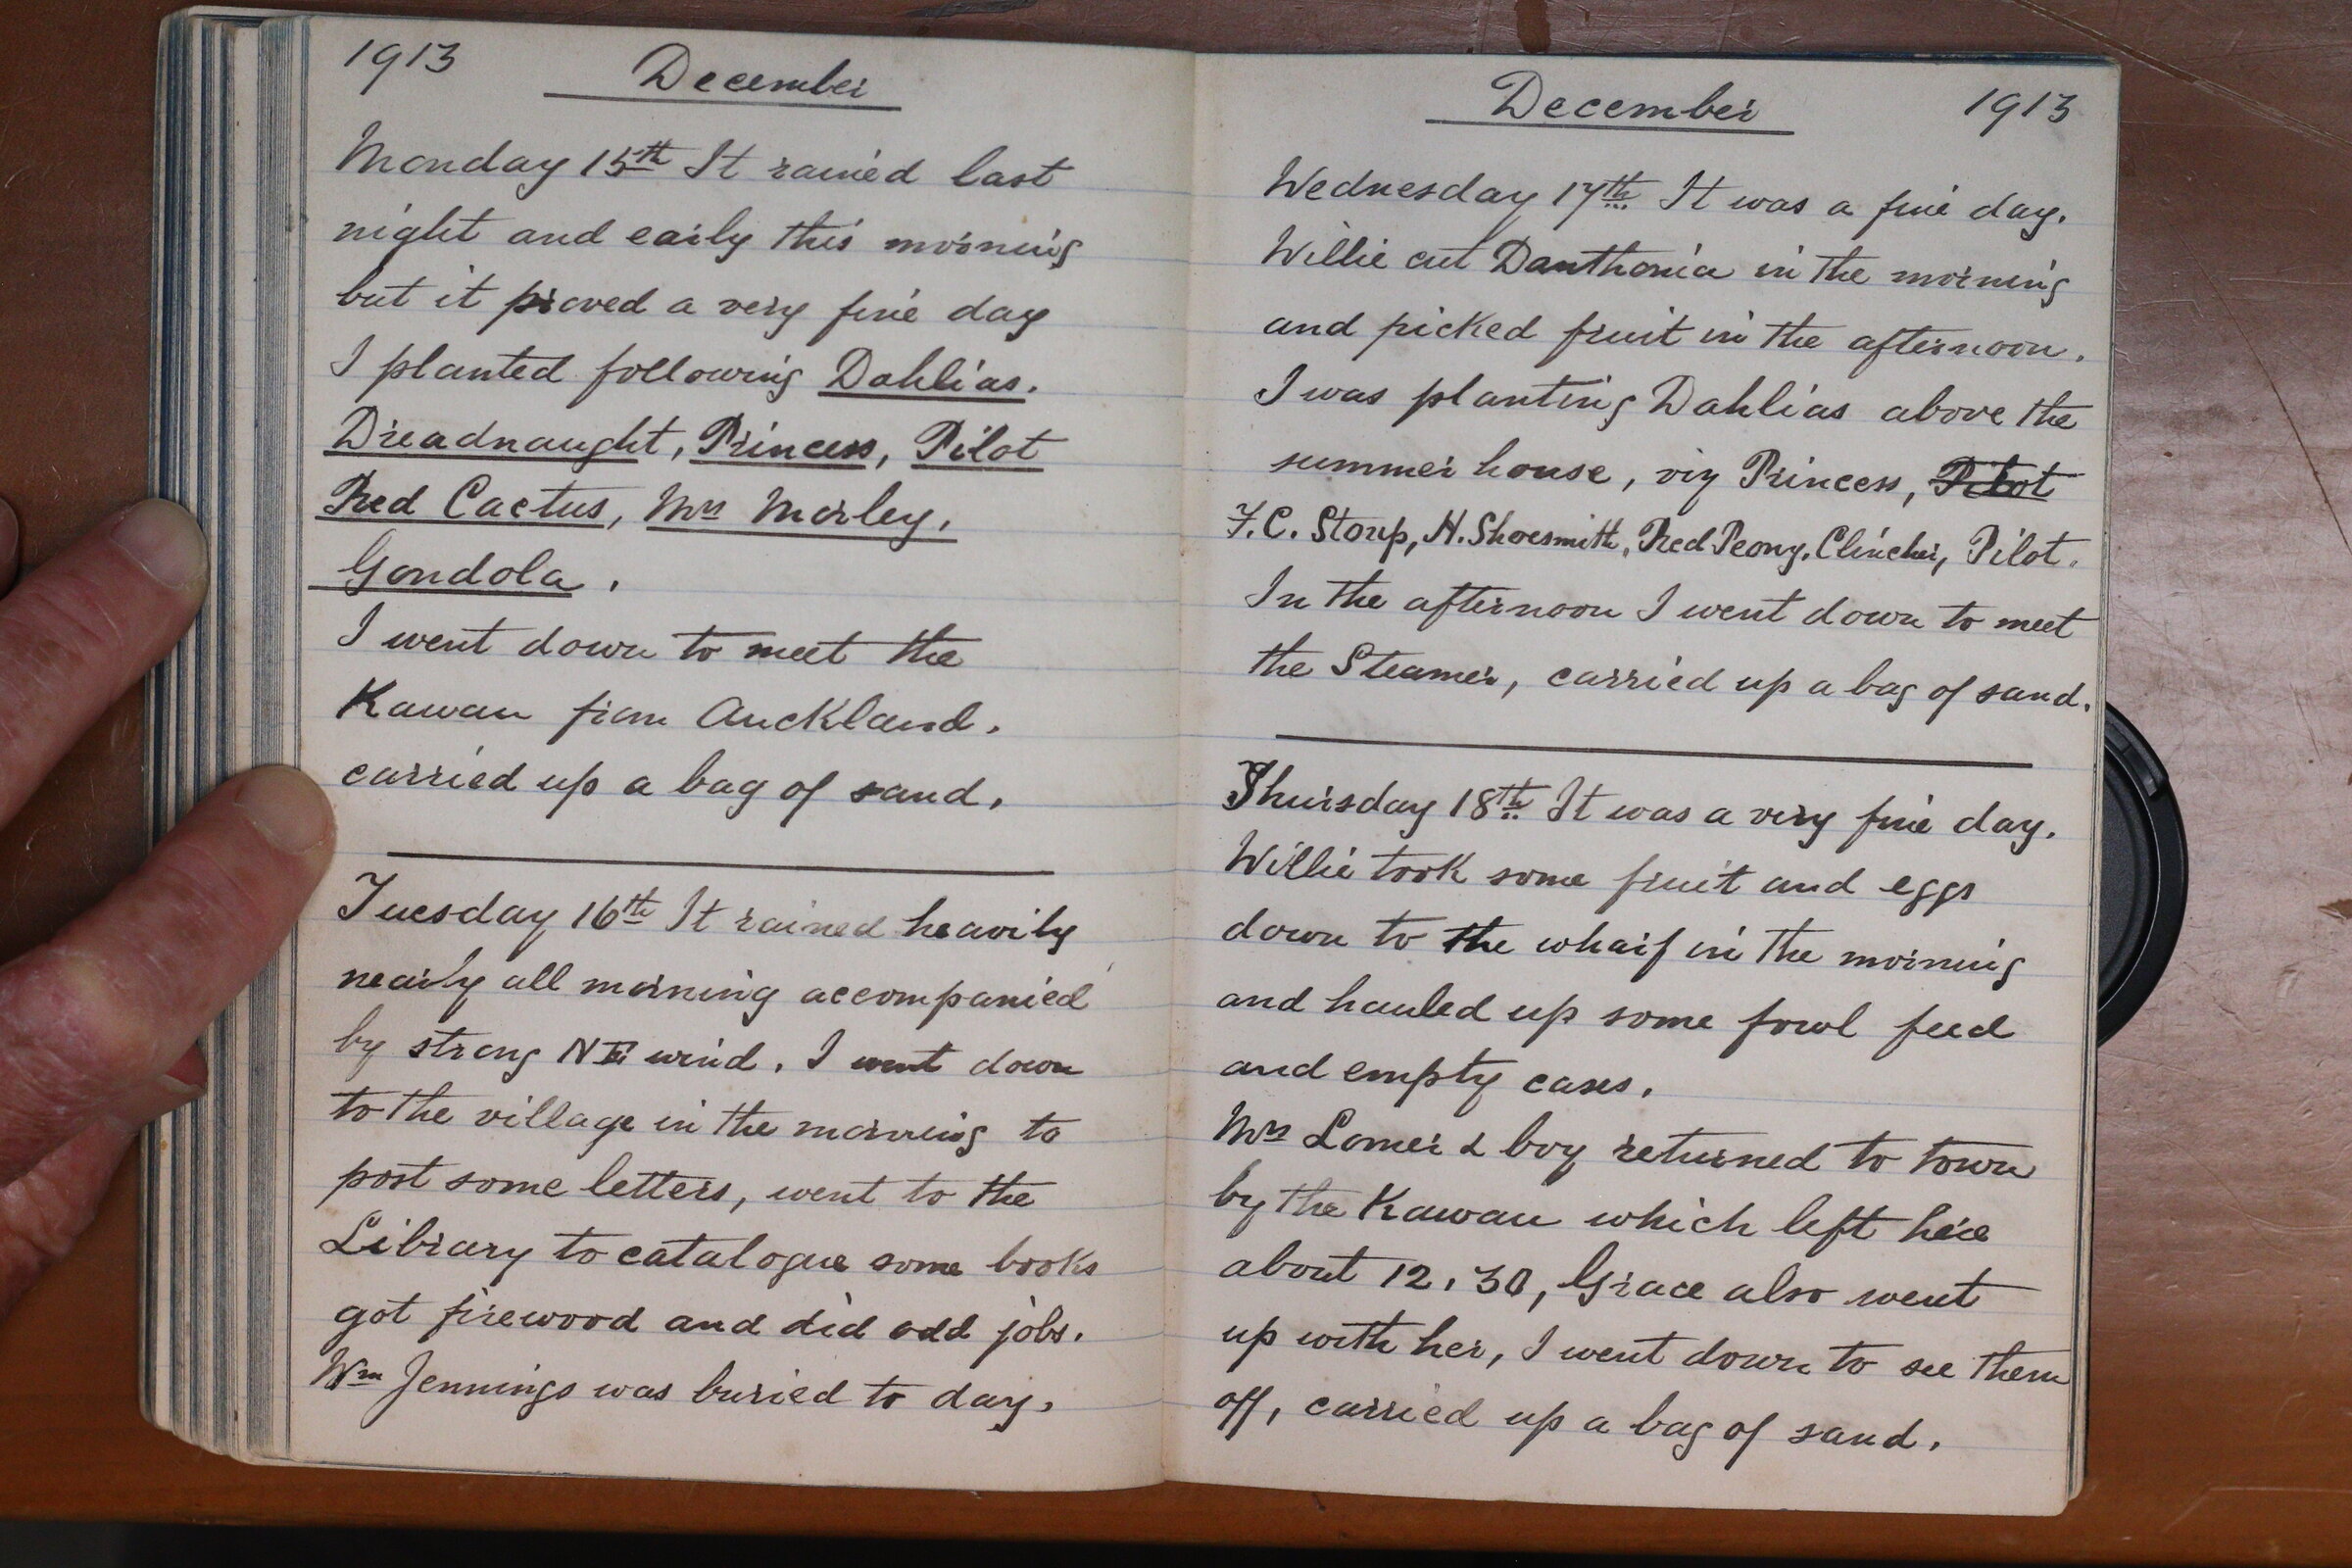 1913
December
Monday 15th It rained last
night and early this morning
but it proved a very fine day
I planted following Dahlias.
Dreadnaught, Princess, Pilot
Red Cactus, Mrs Morley,
Gondola.
I went down to meet the
Kawau from Auckland,
carried up a bag of sand.
Tuesday 16th It rained heavily
nearly all morning accompanied
by strong NE wind. I went down
to the village in the morning to
post some letters, went to the
Library to catalogue some books
got firewood and did odd jobs.
Wm Jennings was buried to day.
December 1913
Wednesday 17th It was a fine day.
Willie cut Danthonia in the morning
and picked fruit in the afternoon.
I was planting Dahlias above the
summer house, viz Princess, Pilot
F.C. Stoup, H. Shoesmith, Red Peony, Clincher, Pilot.
In the afternoon I went down to meet
the Steamer, carried up a bag of sand.
Thursday 18th It was a very fine day.
Willie took some fruit and eggs
down to the wharf in the morning
and hauled up some fowl feed
and empty cases.
Mrs Lomer & boy returned to town
by the Kawau which left here
about 12.30, Grace also went
up with her, I went down to see them
off, carried up a bag of sand.